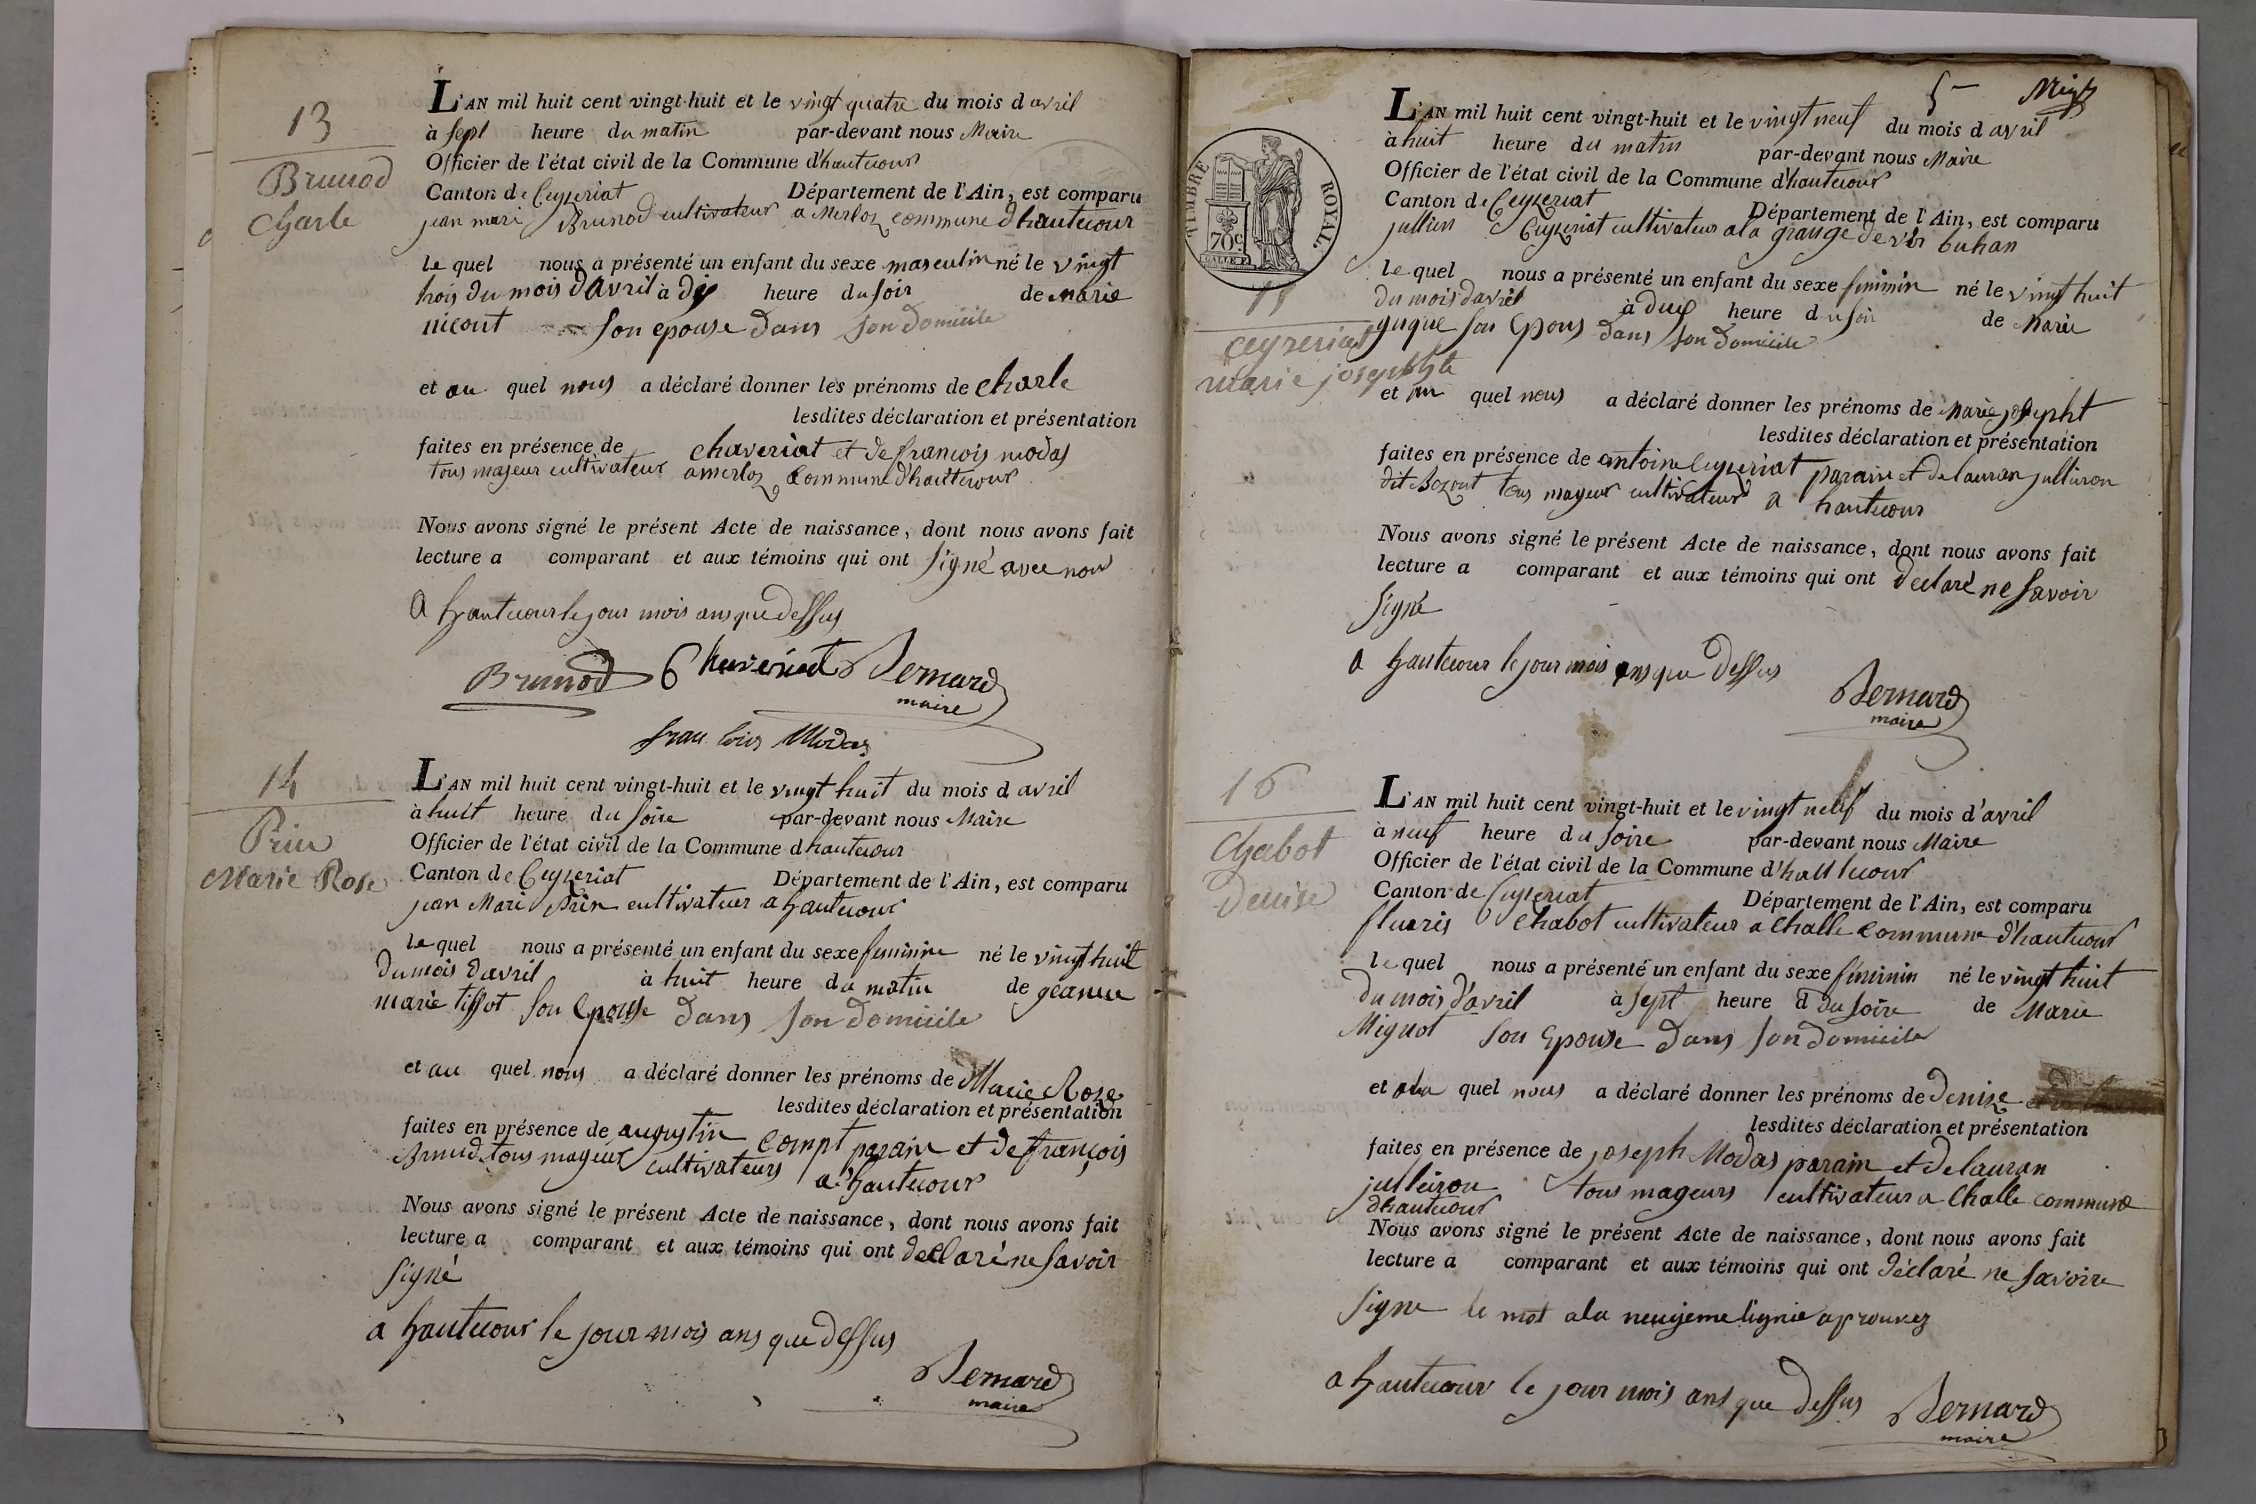 13
Brunod
Charle
L'AN mil huit cent vingt-huit et le vingt quatre du mois d avril
à sept heure du matin par-devant nous Maire
Officier de l'état civil de la Commune d'hautecour
Canton de Ceyzeriat Département de l'Ain, est comparu
jean mari Brunod cultivateur a Merloz commune dhautecour
le quel nous a présenté un enfant du sexe masculin né le vingt
trois du mois d'avril à dix heure du soir de marie
nicout son epouse dans son domicile
et au quel nous a déclaré donner les prénoms de charle
lesdites déclaration et présentation
faites en présence de chaveriat et de francois modas
tous majeur cultivateur a merloz commune dhautecour
Nous avons signé le présent Acte de naissance, dont nous avons fait
lecture a comparant et aux témoins qui ont signé avec nou
a hautecour le jour mois ans que dessus
Brunod Chaveriat Bernard
maire
francois Modas
14
Prin
Marie Rose
L'AN mil huit cent vingt-huit et le vingt huit du mois d avril
à huit heure du soire par-devant nous Maire
Officier de l'état civil de la Commune d hautecour
Canton de Ceyzeriat Département de l'Ain, est comparu
jean Mari Prin cultivateur a hautecour
le quel nous a présenté un enfant du sexe feminin né le vingt huit
du mois d'avril à huit heure du matin de geanne
marie tissot son epouse dans son domicile
et au quel nous a déclaré donner les prénoms de Marie Rose
lesdites déclaration et présentation
faites en présence de augustin compt parain et de françois
Brunod tous mageur cultivateurs a hautecour
Nous avons signé le présent Acte de naissance, dont nous avons fait
lecture a comparant et aux témoins qui ont declaré ne savoir
signé
a hautecour le jour mois ans que dessus
Bernard
maire
5
TIMBRE ROYAL.
70 c.
15
Ceyzeriat
marie josephte
L'AN mil huit cent vingt-huit et le vingt neuf du mois d avril
à huit heure du matin par-devant nous Maire
Officier de l'état civil de la Commune d'hautecour
Canton de Ceyzeriat Département de l'Ain, est comparu
jullien Ceyzeriat cultivateur a la grange de buhan
le quel nous a présenté un enfant du sexe feminin né le vingt huit
du mois d'avril à dix heure du soir de Marie
son epous dans son domicile
et au quel nous a déclaré donner les prénoms de Marie josepht
lesdites déclaration et présentation
faites en présence de antoine Ceyzeriat parain et de lauran julliron
dit Bozout tous mageur cultivateur a hautecour
Nous avons signé le présent Acte de naissance, dont nous avons fait
lecture a comparant et aux témoins qui ont declaré ne savoir
signé
a hautecour le jour mois ans que dessus
Bernard
maire
16
Chabot
Denise
L'AN mil huit cent vingt-huit et le vingt neuf du mois d'avril
à neuf heure du soire par-devant nous Maire
Officier de l'état civil de la Commune d'hautecour
Canton de Ceyzeriat Département de l'Ain, est comparu
fluaris Chabot cultivateur a challe commune d'hautecour
le quel nous a présenté un enfant du sexe féminin né le vingt huit
du mois d'avril à sept heure d du soire de Marie
Mignot son Epouse dans son domicile
et ala quel nous a déclaré donner les prénoms de denize
lesdites déclaration et présentation
faites en présence de joseph Modas parain et de lauran
julleiron tous mageurs cultivateur a Challe commune
dhautecour
Nous avons signé le présent Acte de naissance, dont nous avons fait
lecture a comparant et aux témoins qui ont déclaré ne savoire
signe le mot ala neuvieme lignie aprouvez
a hautecour le jour mois ans que dessus
Bernard
maire